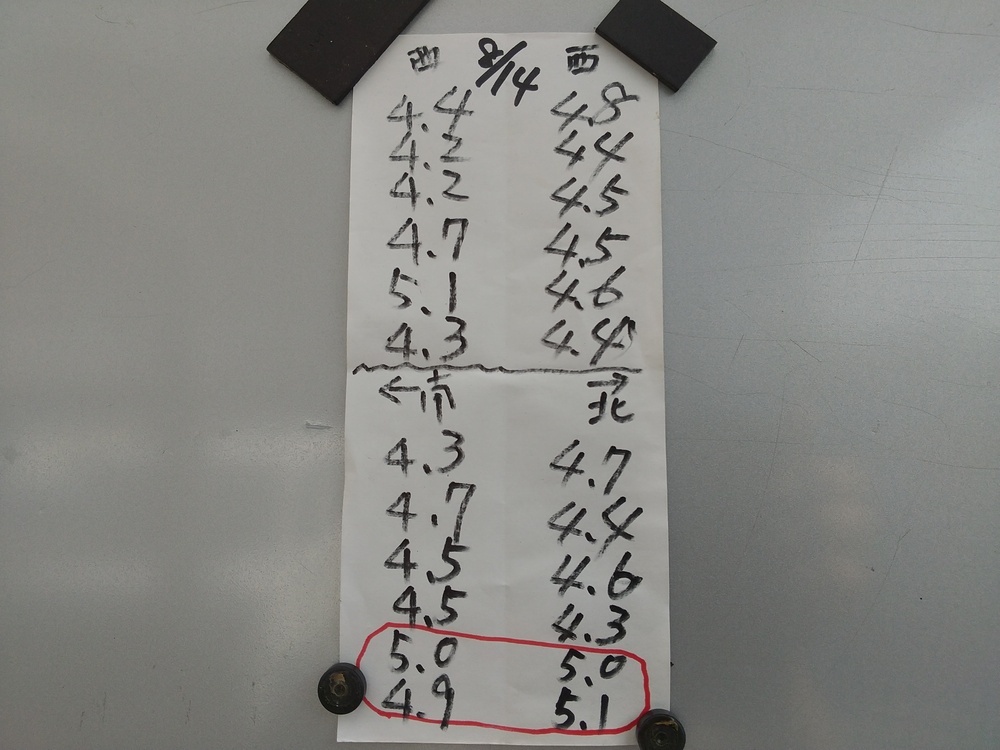 西 8/14 西
4.4 4.8
4.2 4.4
4.2 4.5
4.7 4.5
5.1 4.6
4.3 4.4
←南 →北
4.3 4.7
4.7 4.4
4.5 4.6
4.5 4.3
5.0 5.0
4.9 5.1